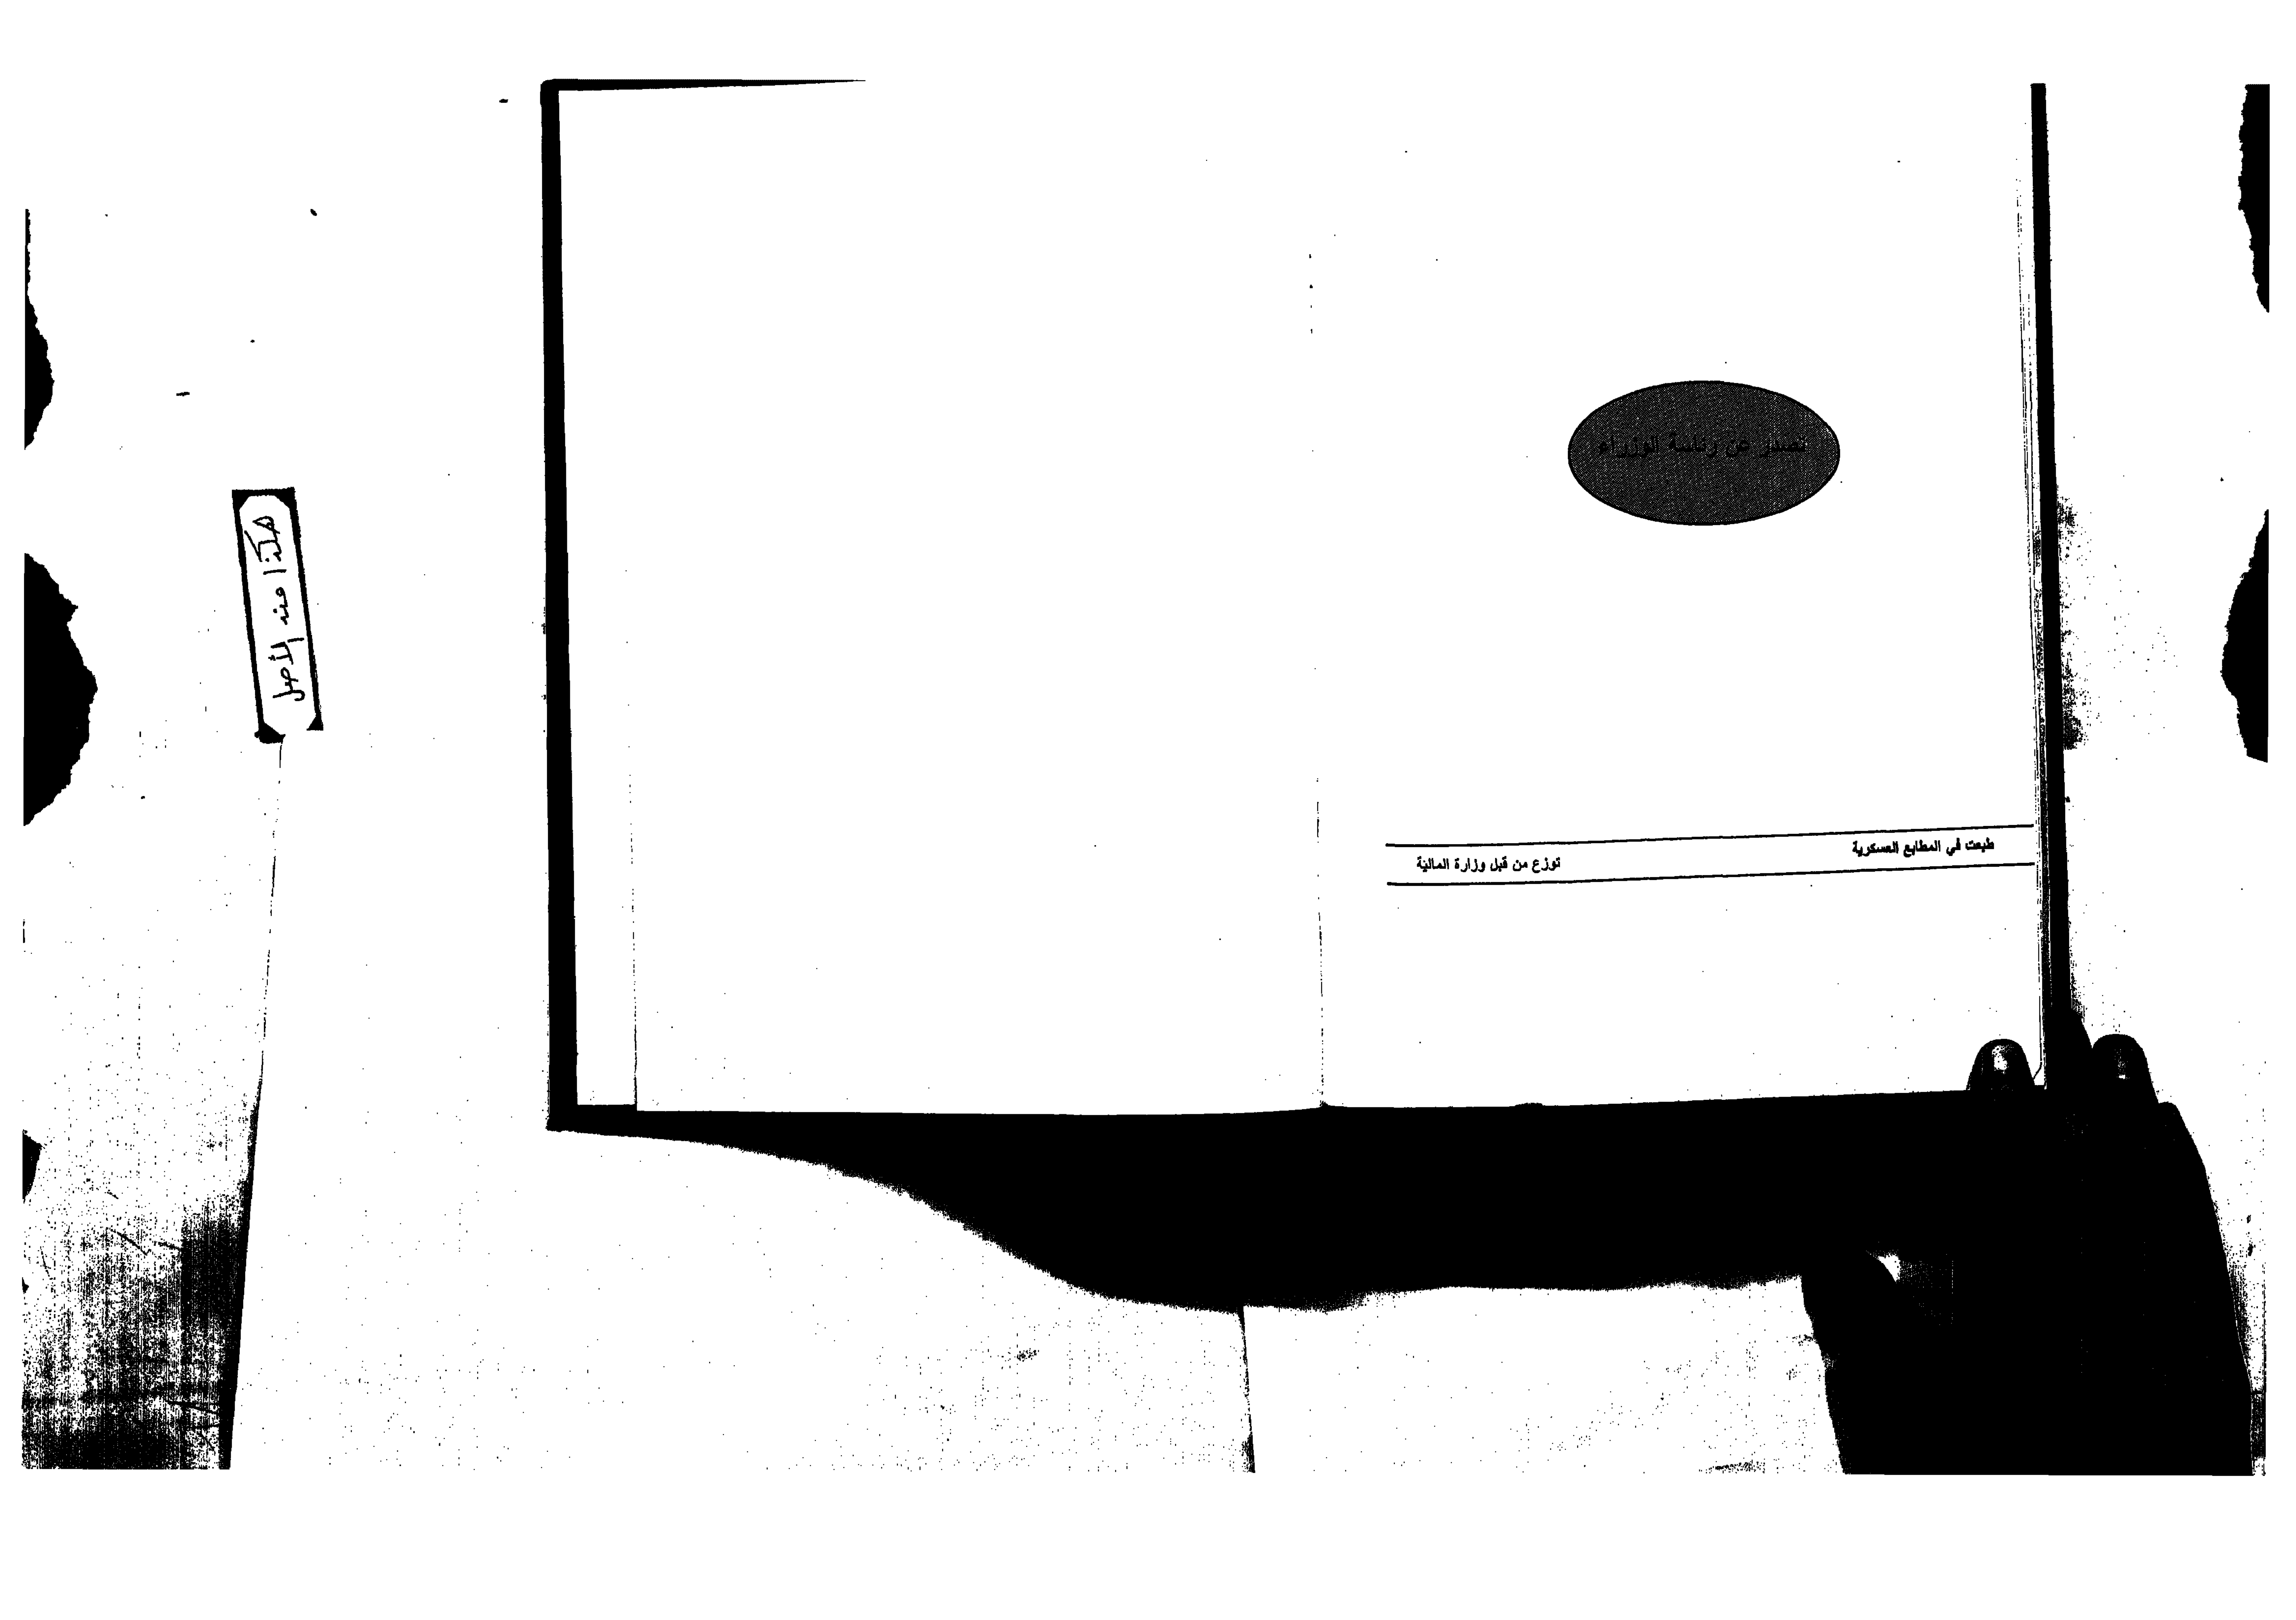 تصدر عن رئاسة الوزراء
طبعت في المطابع العسكرية
توزع من قبل وزارة المالية
هكذا من الأصل